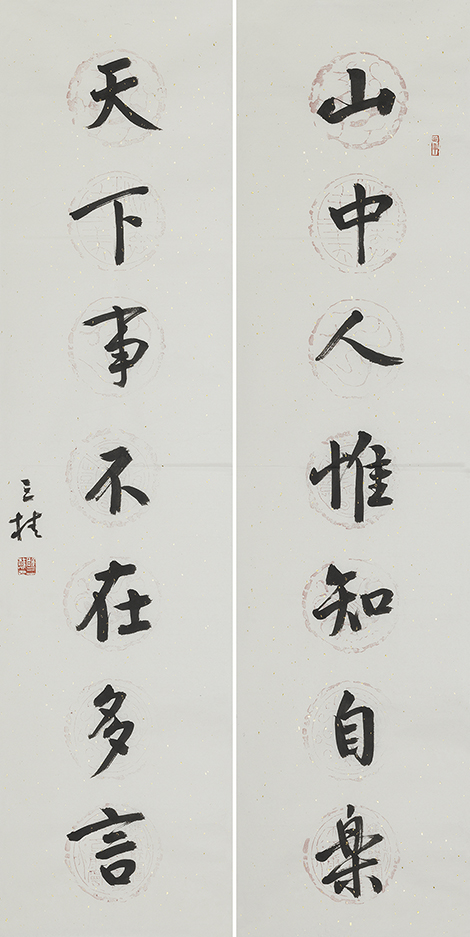 山中人惟知自樂
天下事不在多言